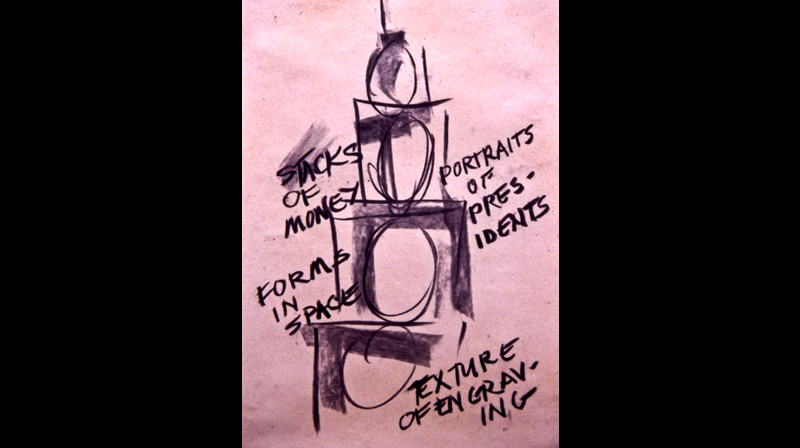 STACKS
OF
MONEY
PORTRAITS
OF
PRES-
IDENTS
FORMS
IN
SPACE
TEXTURE
OF ENGRAV-
ING